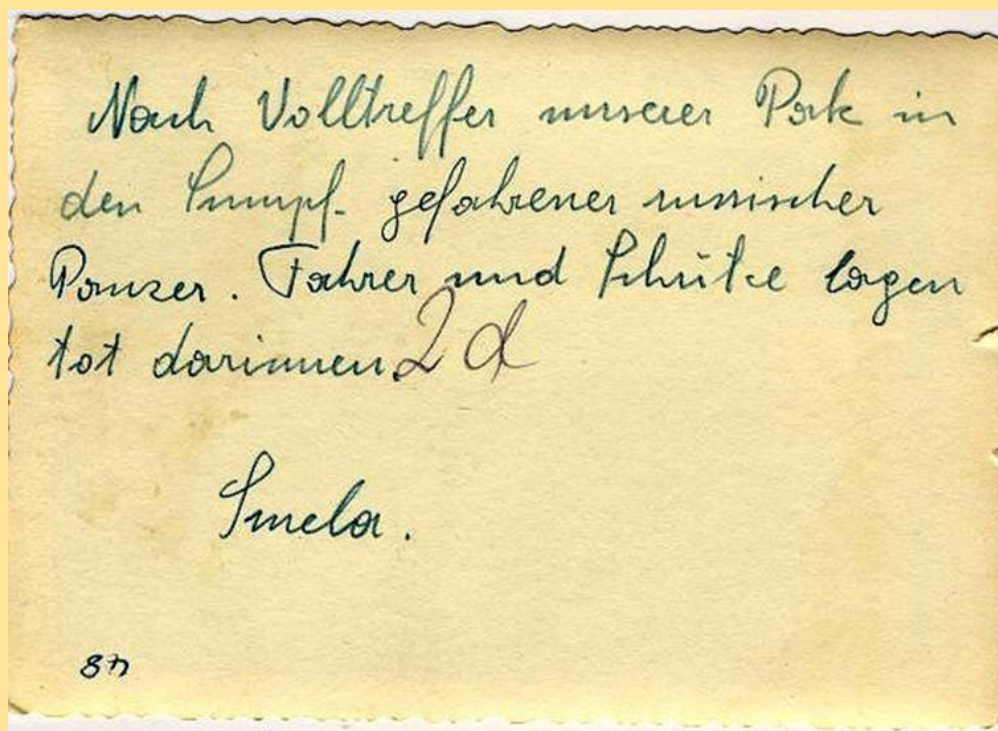 Nach Volltreffer unserer Pak in
den Sumpf gefahrener russischer
Panzer. Fahrer und Schütze lagen
tot darinnen. 2 d
Smela.
87